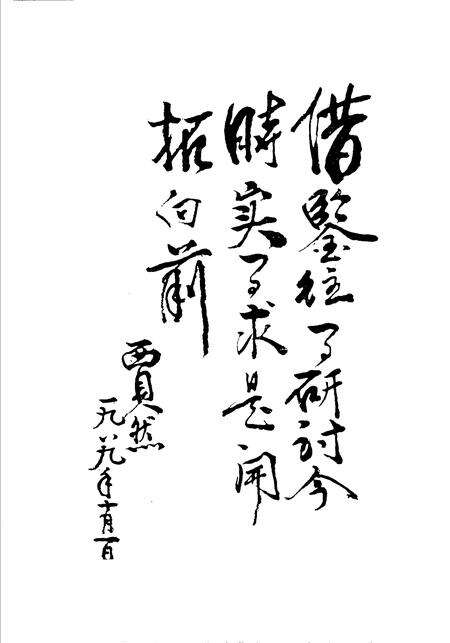 借鑒往了研討今
時实了求是開
拓向前
賈然
一九八九年十月一日